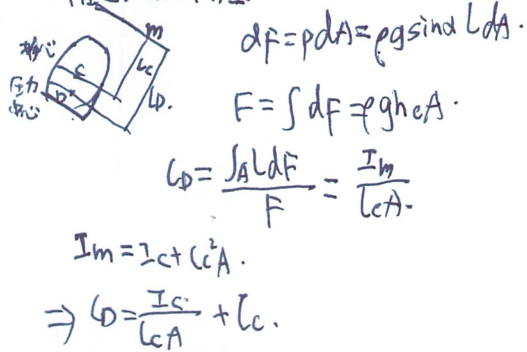 m
形心
C
Lc
压力
中心
D
LD.
dF=pdA=ρgsinα LdA.
F=∫dF=ρghcA.
LD=∫A LdF/F=Im/LcA.
Im=Ic+Lc²A.
⇒ LD=Ic/LcA+Lc.